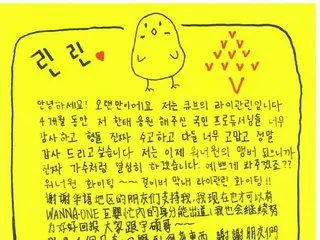 린린
안녕하세요! 오랜만이에요 저는 큐브의 라이관린입니다
4개월 동안 저 한테 응원 해주신 국민 프로듀서님들 너무
감사 하고 형들 진짜 수고하고 다들 너무 고맙고 정말
감사 드리고 싶습니다 저는 이제 워너원의 멤버 됐으니까
진짜 가수처럼 열심히 하겠습니다 예쁘게 봐주겠죠??
워너원 화이팅 ~ 걸이버 막내 라이관린 화이팅!!
謝謝華語地區的朋友們支持我, 我現在也可以有
WANNA·ONE 的身份能出道, 我也會繼續努
力好好回報大家跟宇碩哥~
謝謝朋友們